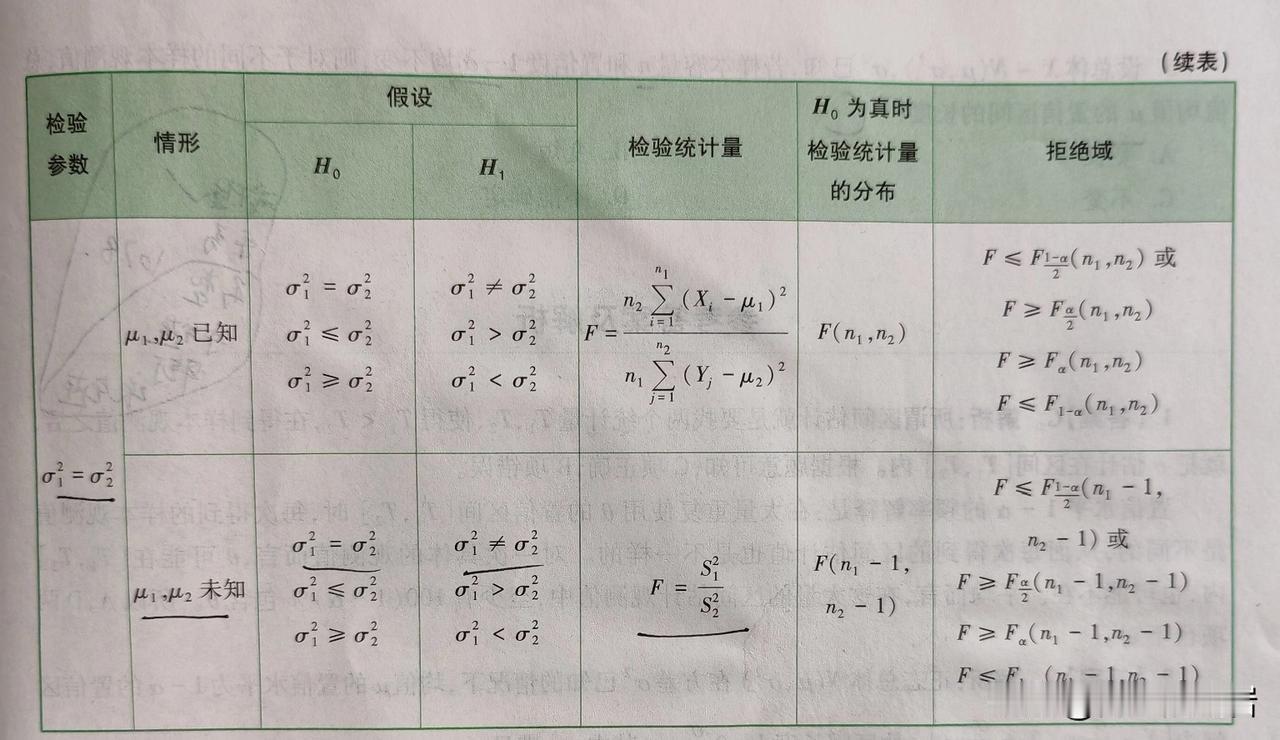 (续表)
检验参数 情形 假设 检验统计量 H₀ 为真时检验统计量的分布 拒绝域
H₀ H₁
σ₁² = σ₂²
μ₁,μ₂ 已知
σ₁² = σ₂²
σ₁² ≤ σ₂²
σ₁² ≥ σ₂²
σ₁² ≠ σ₂²
σ₁² > σ₂²
σ₁² < σ₂²
F = n₂ ∑_{i=1}^{n₁} (Xᵢ − μ₁)² / n₁ ∑_{j=1}^{n₂} (Yⱼ − μ₂)²
F(n₁,n₂)
F ≤ F_{(1−α)/2}(n₁,n₂) 或
F ≥ F_{α/2}(n₁,n₂)
F ≥ F_α(n₁,n₂)
F ≤ F_{1−α}(n₁,n₂)
μ₁,μ₂ 未知
σ₁² = σ₂²
σ₁² ≤ σ₂²
σ₁² ≥ σ₂²
σ₁² ≠ σ₂²
σ₁² > σ₂²
σ₁² < σ₂²
F = S₁² / S₂²
F(n₁ − 1,
n₂ − 1)
F ≤ F_{(1−α)/2}(n₁ − 1,
n₂ − 1) 或
F ≥ F_{α/2}(n₁ − 1,n₂ − 1)
F ≥ F_α(n₁ − 1,n₂ − 1)
F ≤ F₁ (n₁ − 1,n₂ − 1)